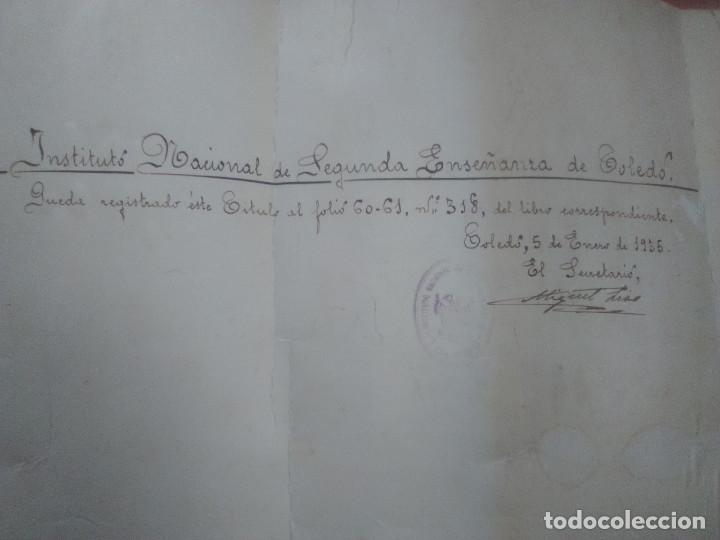 Instituto Nacional de Segunda Enseñanza de Toledo.
Queda registrado éste Título al folio 60-61, nº 318, del libro correspondiente.
Toledo, 5 de Enero de 1935.
El Secretario,
Miguel
todocoleccion.net